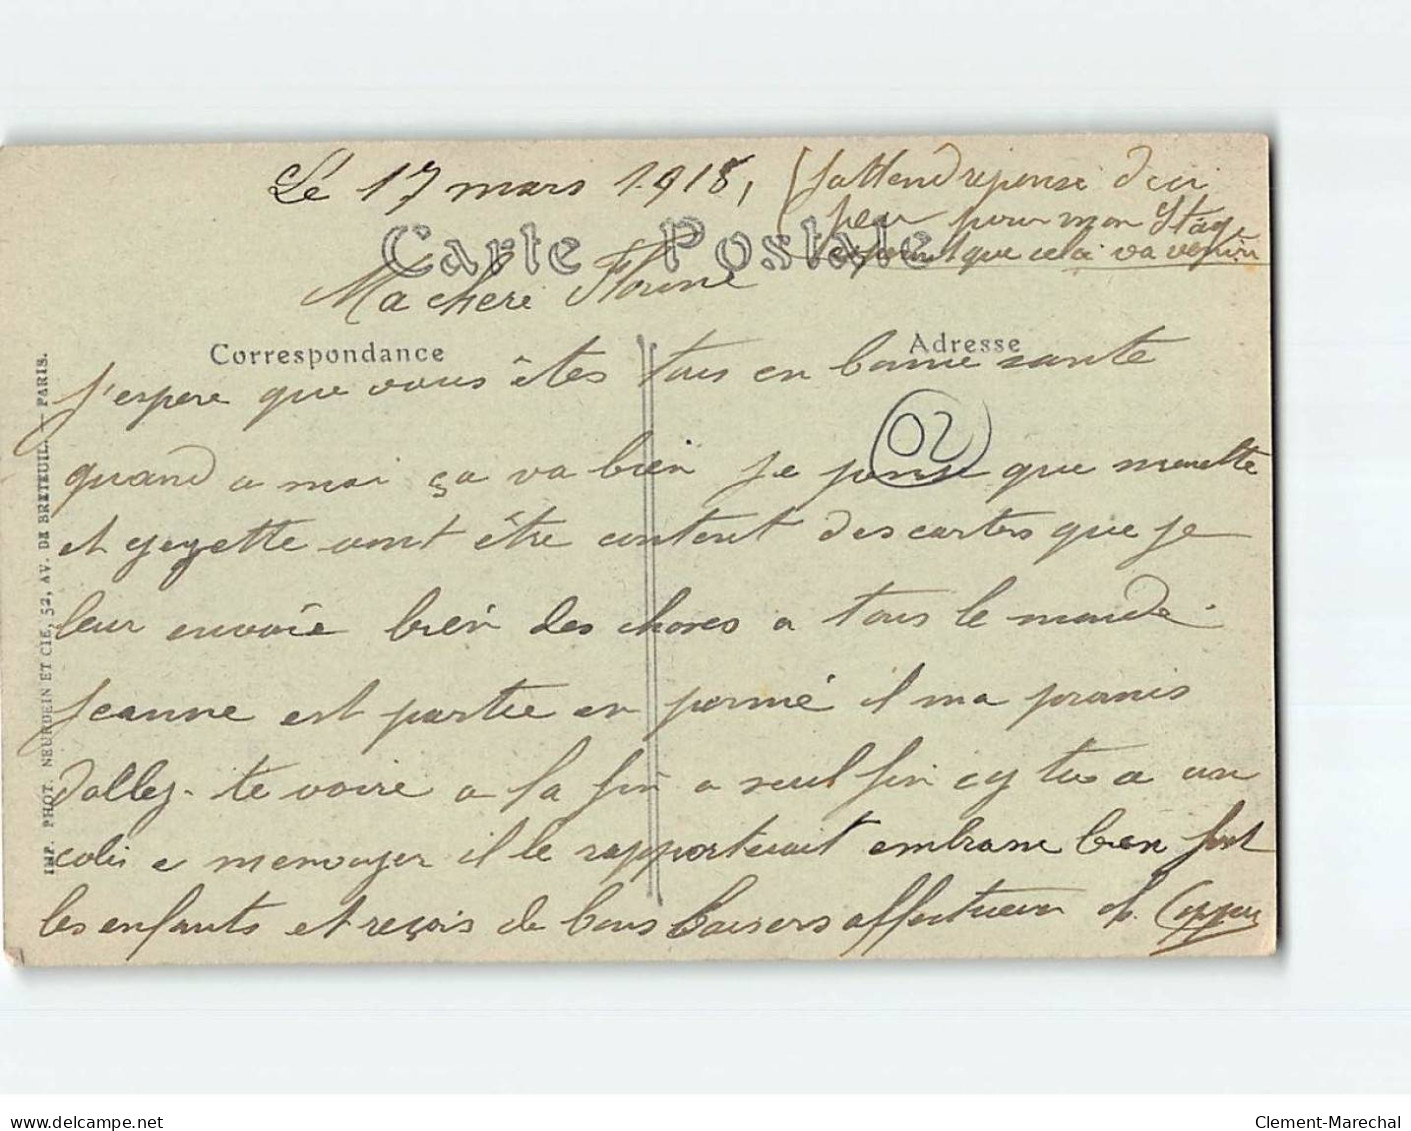 Le 17 mars 1918,
J'attend réponse d'ici
peu pour mon Stag
esperant que cela va venir
Carte Postale
Ma chère Florine
Correspondance
Adresse
J'espere que vous êtes tous en bonne sante
02
quand a moi ça va bien je pense que
et gegette vont être content des cartes que je
leur envoie bien des choses a tous le monde.
Jeanne est partie en permé il ma promis
dallez te voire a la fin a seul fin cy tu a un
colis a menvoyer il le rapporterait embrasse bien fort
les enfants et reçois de bons baisers affectueux
IMP. PHOT. NEURDEIN ET CIE, 52, AV. DE BRETEUIL. — PARIS.
www.delcampe.net
Clement-Marechal